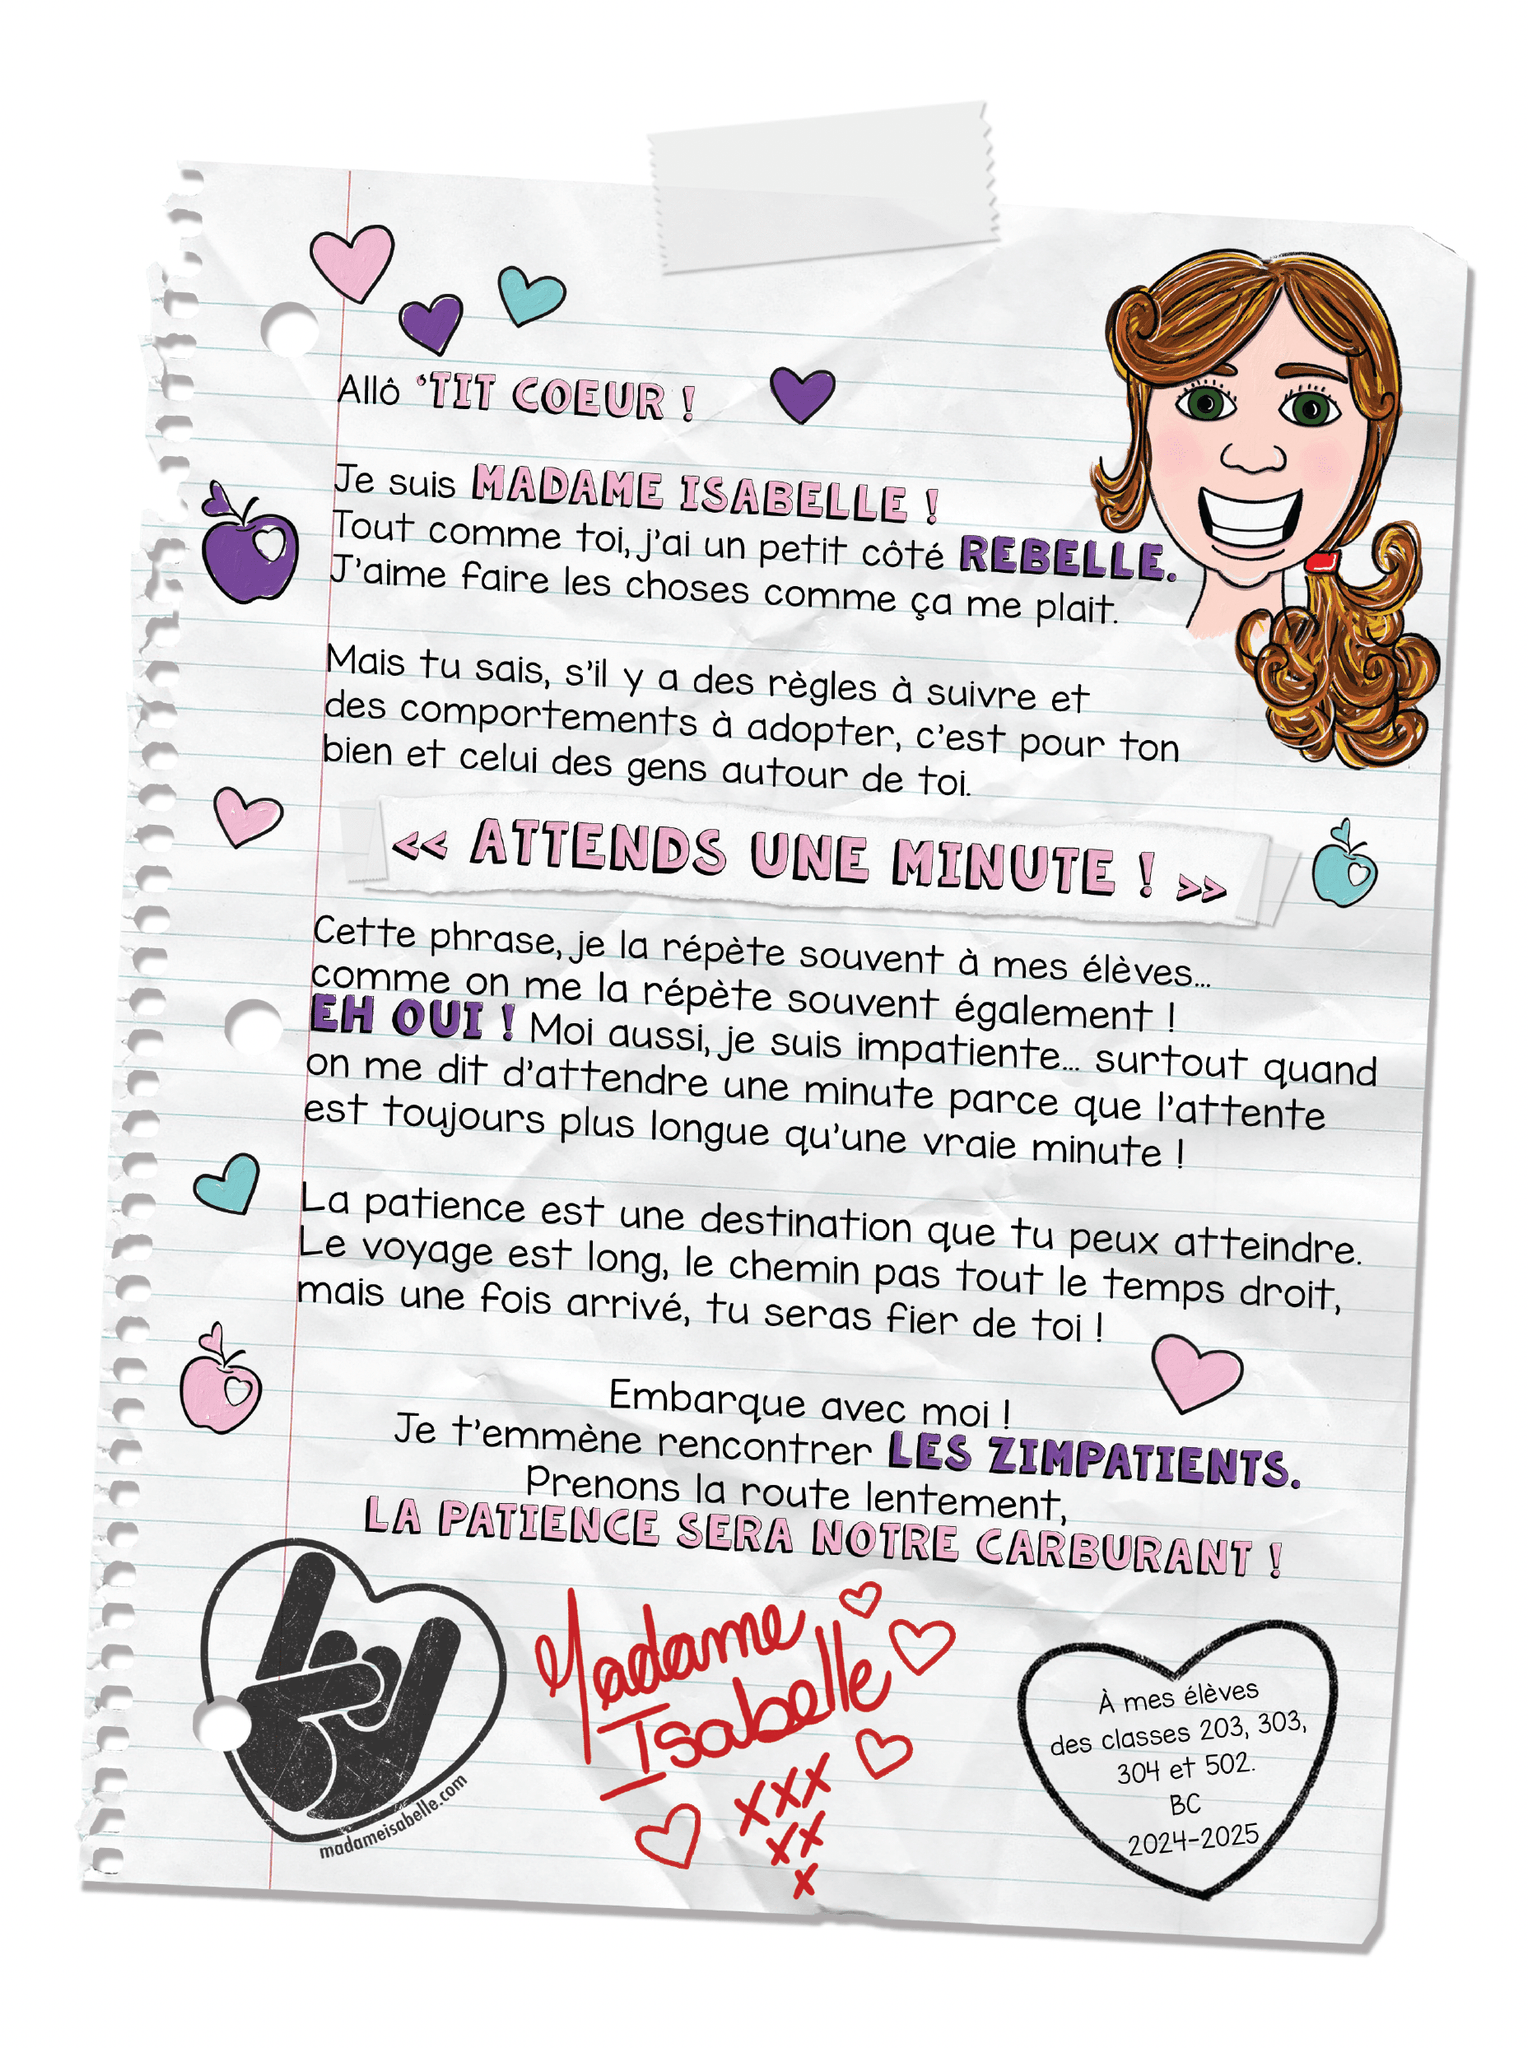 Allô ‘TIT COEUR !
Je suis MADAME ISABELLE !
Tout comme toi, j'ai un petit côté REBELLE.
J'aime faire les choses comme ça me plait.
Mais tu sais, s'il y a des règles à suivre et
des comportements à adopter, c'est pour ton
bien et celui des gens autour de toi.
<< ATTENDS UNE MINUTE ! >>
Cette phrase, je la répète souvent à mes élèves...
comme on me la répète souvent également !
EH OUI ! Moi aussi, je suis impatiente... surtout quand
on me dit d'attendre une minute parce que l'attente
est toujours plus longue qu'une vraie minute !
La patience est une destination que tu peux atteindre.
Le voyage est long, le chemin pas tout le temps droit,
mais une fois arrivé, tu seras fier de toi !
Embarque avec moi !
Je t'emmène rencontrer LES ZIMPATIENTS.
Prenons la route lentement,
LA PATIENCE SERA NOTRE CARBURANT !
madameisabelle.com
Madame
Isabelle
xxx
xx
x
À mes élèves
des classes 203, 303,
304 et 502.
BC
2024-2025